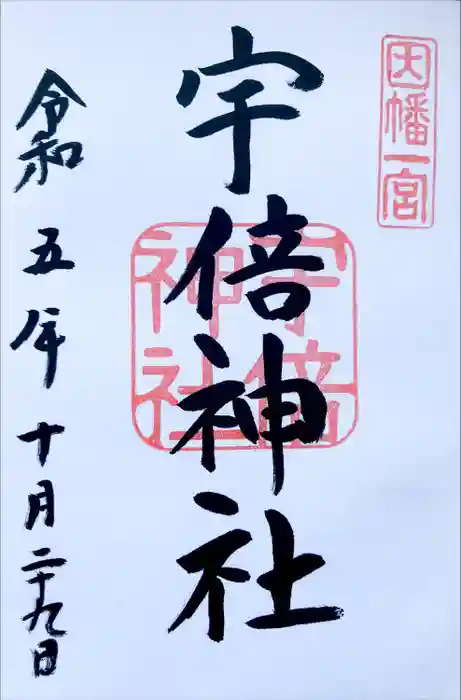 因幡一宮
宇倍神社
宇倍神社
令和五年十月二十九日